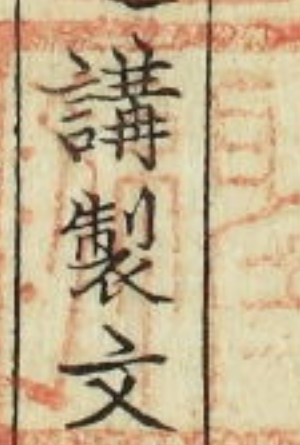 講製文